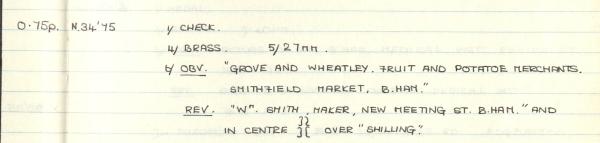 0.75p. N.34'75 1/ CHECK.
4/ BRASS. 5/27mm.
6/ OBV. "GROVE AND WHEATLEY. FRUIT AND POTATOE MERCHANTS.
SMITHFIELD MARKET, B.HAM."
REV. "Wm. SMITH, MAKER, NEW MEETING ST. B.HAM." AND
IN CENTRE OVER "SHILLING".